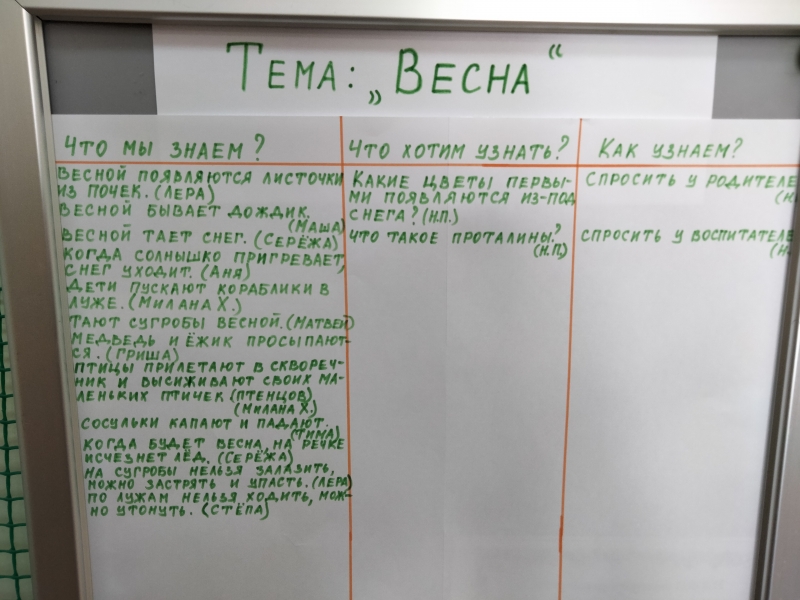 Тема: „Весна“
Что мы знаем?
Весной появляются листочки
из почек. (Лера)
Весной бывает дождик.
(Маша)
Весной тает снег. (Серёжа)
Когда солнышко пригревает,
снег уходит. (Аня)
Дети пускают кораблики в
луже. (Милана Х.)
Тают сугробы весной. (Матвей)
Медведь и ёжик просыпают-
ся. (Гриша)
Птицы прилетают всквореч-
ник и высиживают своих ма-
леньких птичек (птенцов).
(Милана Х.)
Сосульки капают и падают.
(Тима)
Когда будет весна, на речке
исчезнет лёд. (Серёжа)
На сугробы нельзя залазить,
можно застрять и упасть. (Лера)
По лужам нельзя ходить, мож-
но утонуть. (Стёпа)
Что хотим узнать?
Какие цветы первы-
ми появляются из-под
снега? (Н.П.)
Что такое проталины?
(Н.П.)
Как узнаем?
Спросить у родителе
(Н.
Спросить у воспитателе
(Н.